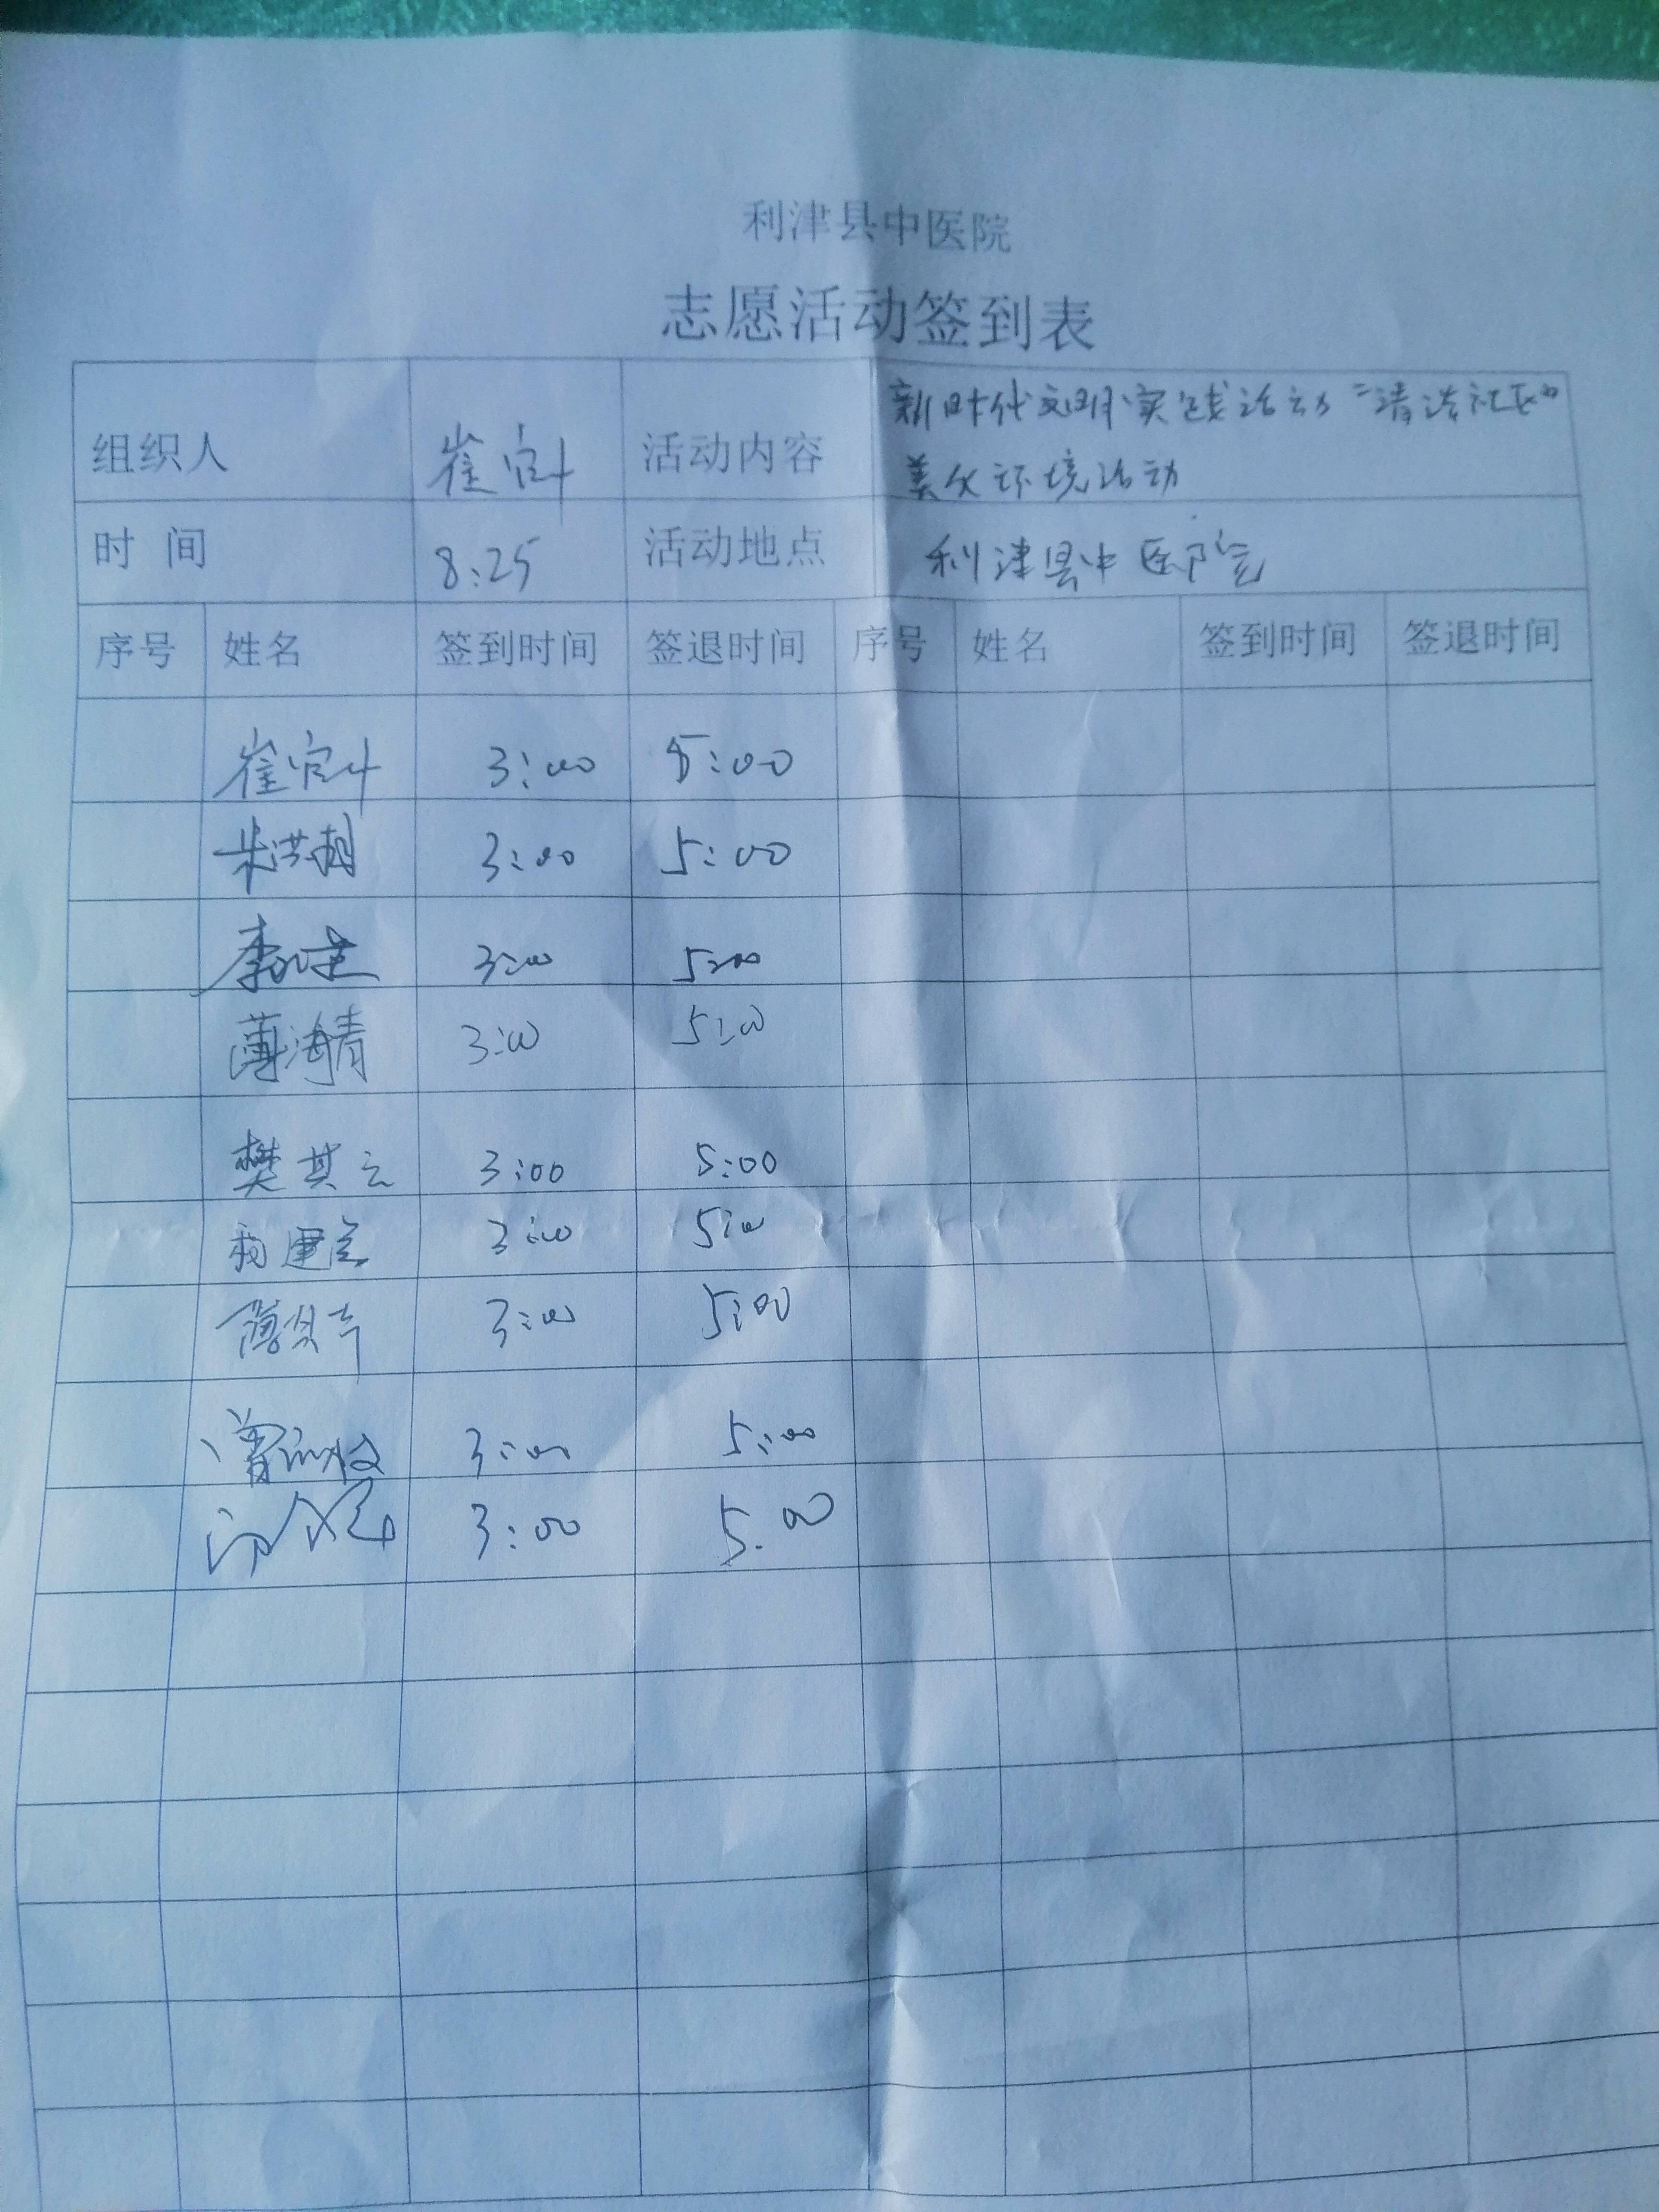 利津县中医院
志愿活动签到表
组织人 崔 活动内容 新时代文明实践活动“清洁社区”
美化环境活动
时 间 8:25 活动地点 利津县中医院
序号 姓名 签到时间 签退时间 序号 姓名 签到时间 签退时间
崔 3:00 5:00
朱洪 3:00 5:00
李 3:00 5:00
薄海青 3:00 5:00
樊其云 3:00 5:00
3:00 5:00
薄 3:00 5:00
曹 3:00 5:00
3:00 5.00